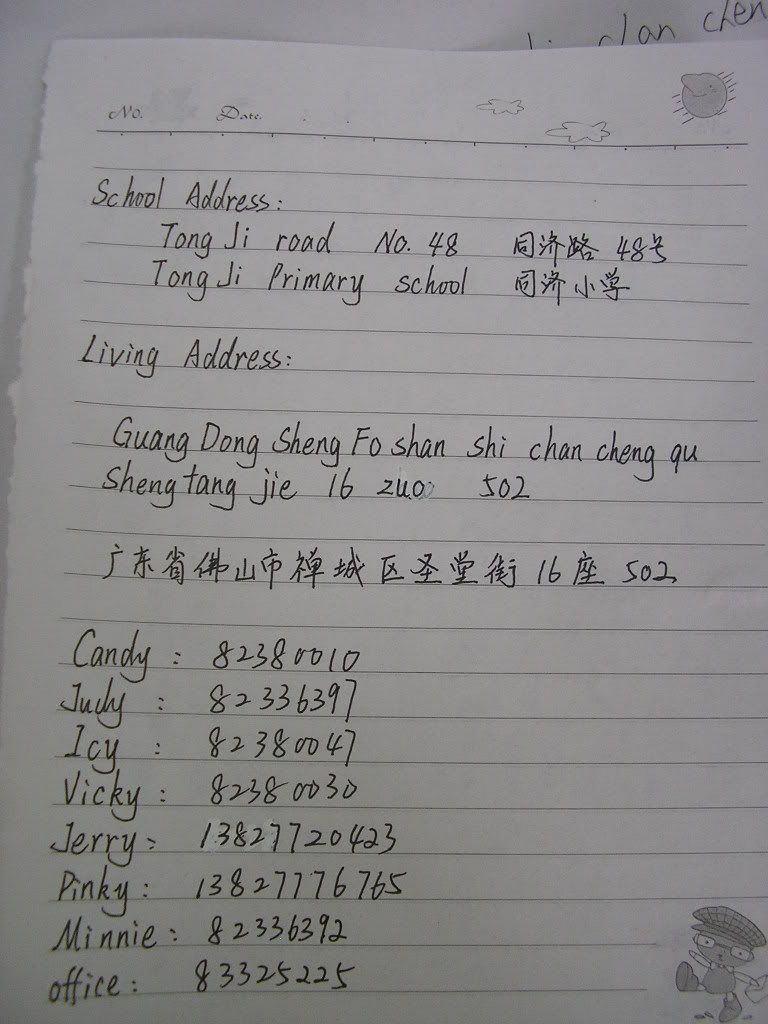 chen
No. Date.
School Address:
Tong Ji road No. 48 同济路 48号
Tong Ji Primary school 同济小学
Living Address:
Guang Dong Sheng Fo shan shi chan cheng qu
Sheng tang jie 16 zuo 502
广东省佛山市禅城区圣堂街 16座 502
Candy : 82380010
Judy : 82336397
Icy : 82380047
Vicky : 82380030
Jerry : 13827720423
Pinky : 13827776765
Minnie : 82336392
office : 83325225